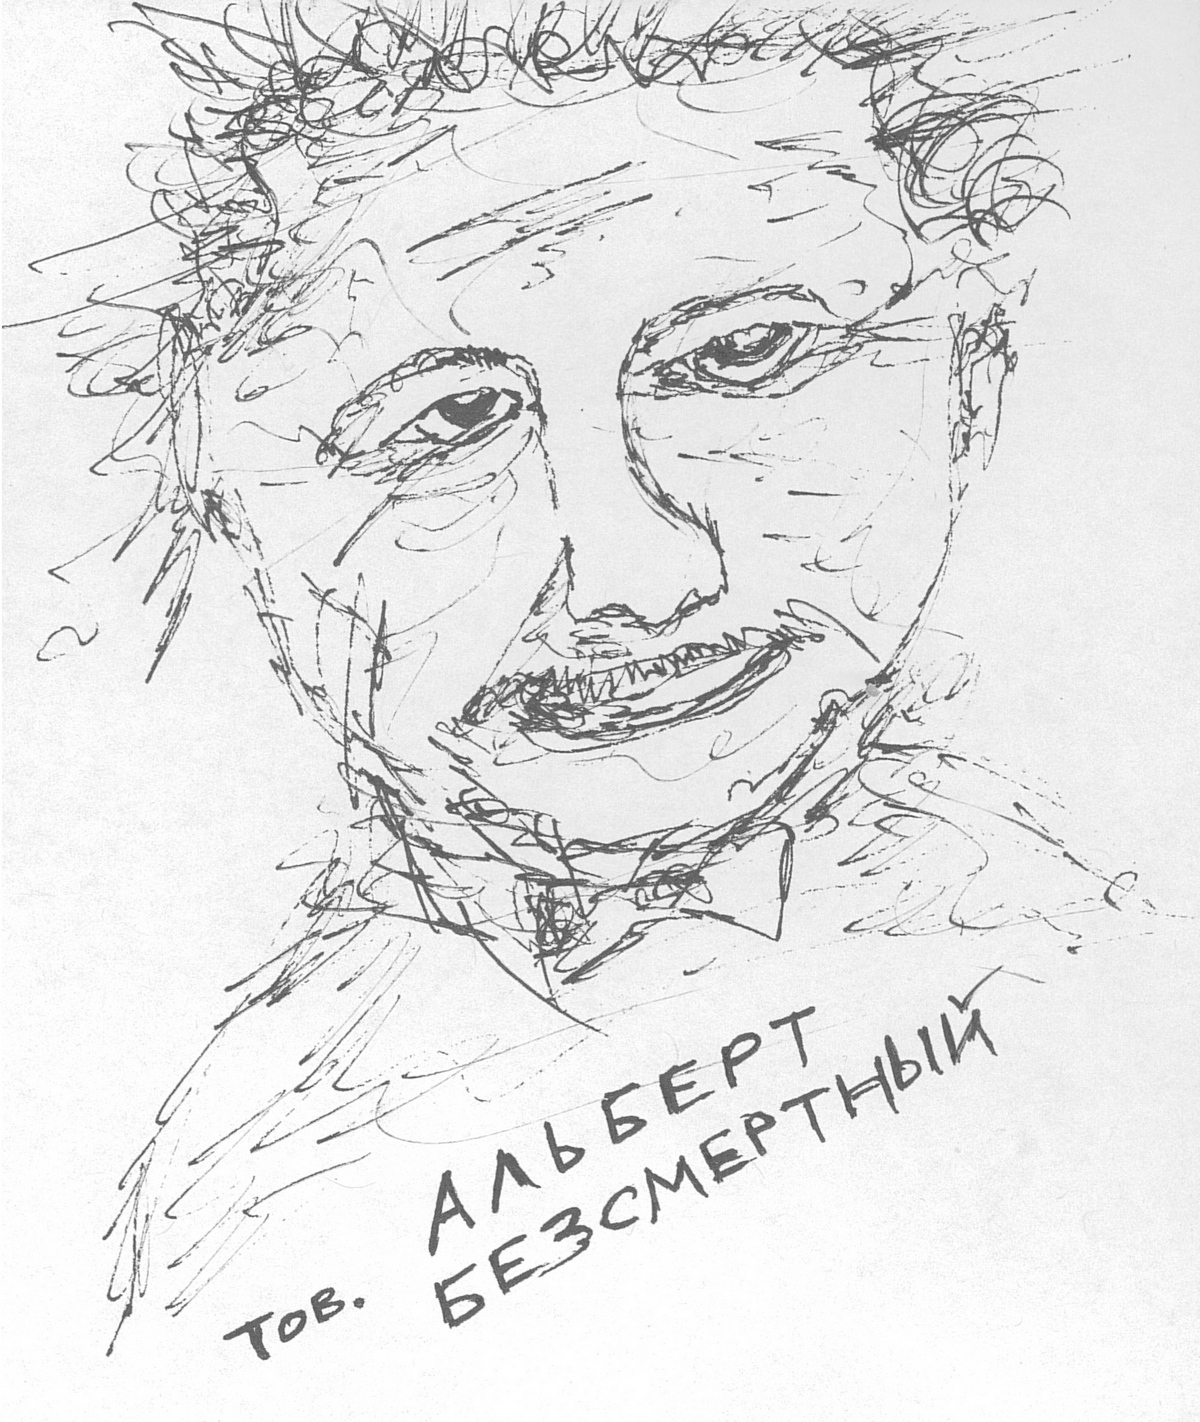 АЛЬБЕРТ
тов. БЕЗСМЕРТНЫЙ